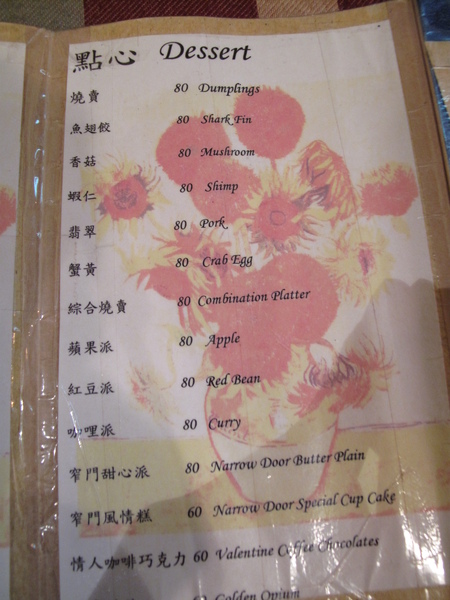 點心 Dessert
燒賣 80 Dumplings
魚翅餃 80 Shark Fin
香菇 80 Mushroom
蝦仁 80 Shimp
翡翠 80 Pork
蟹黃 80 Crab Egg
綜合燒賣 80 Combination Platter
蘋果派 80 Apple
紅豆派 80 Red Bean
咖哩派 80 Curry
窄門甜心派 80 Narrow Door Butter Plain
窄門風情糕 60 Narrow Door Special Cup Cake
情人咖啡巧克力 60 Valentine Coffee Chocolates
Golden Opium